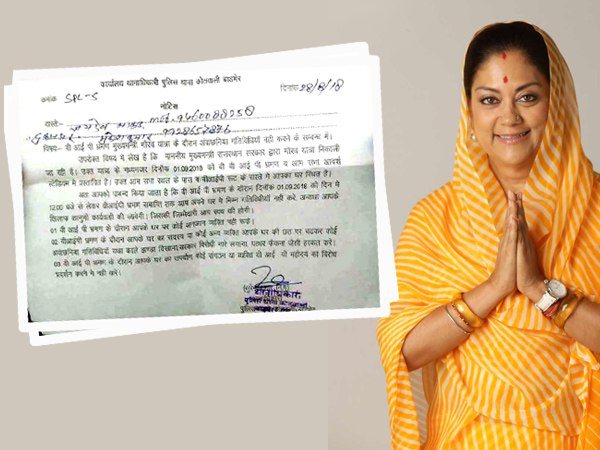 कार्यालय थानाधिकारी पुलिस थाना कोतवाली बाडमेर
क्रमांक SPL-5 दिनांक 28/8/18
नोटिस
9460088258
9928657876
विषय- वी आई पी भ्रमण मुख्यमंत्री गौरव यात्रा के दौरान अवांछनिय गतिविधियां नही करने के सम्बन्ध में।
उपरोक्त विषय में लेख है कि माननीय मुख्यमंत्री राजस्थान सरकार द्वारा गौरव यात्रा निकाली
जा रही है। उक्त यात्रा के मध्यनजर दिनांक 01.09.2018 को वी आई पी भ्रमण व आम सभा आदर्श
स्टेडियम में प्रस्तावित है। उक्त आम सभा स्थल के पास व वीआईपी रूट के रास्ते में आपका घर स्थित है।
अतः आपको पाबन्द किया जाता है कि वी आई पी भ्रमण के दौरान दिनांक 01.09.2018 को दिन में
12.00 बजे से लेकर वीआईपी भ्रमण समाप्ति तक आप अपने घर में निम्न गतिविधियां नही करे, अन्यथा आपके
खिलाफ कानुनी कार्यवाही की जायेगी। जिसकी जिम्मेदारी आप स्वयं की होगी।
01 वी आई पी भ्रमण के दौरान आपके घर पर कोई अनजान व्यक्ति नही रूके।
02 वीआईपी भ्रमण के दौरान आपके घर का सदस्य या कोई अन्य व्यक्ति आपके घर की छत पर चढकर कोई
अवांछनीय गतिविधियां यथा काले झण्डा दिखाना, सरकार विरोधी नारे लगाना, पत्थर फेंकना जैसी हरकत करे।
03 वी आई पी भ्रमण के दौरान आपके घर का उपयोग कोई संगठन या व्यक्ति वी आई पी महोदय का विरोध
प्रदर्शन करने में नही करे।
थानाधिकारी